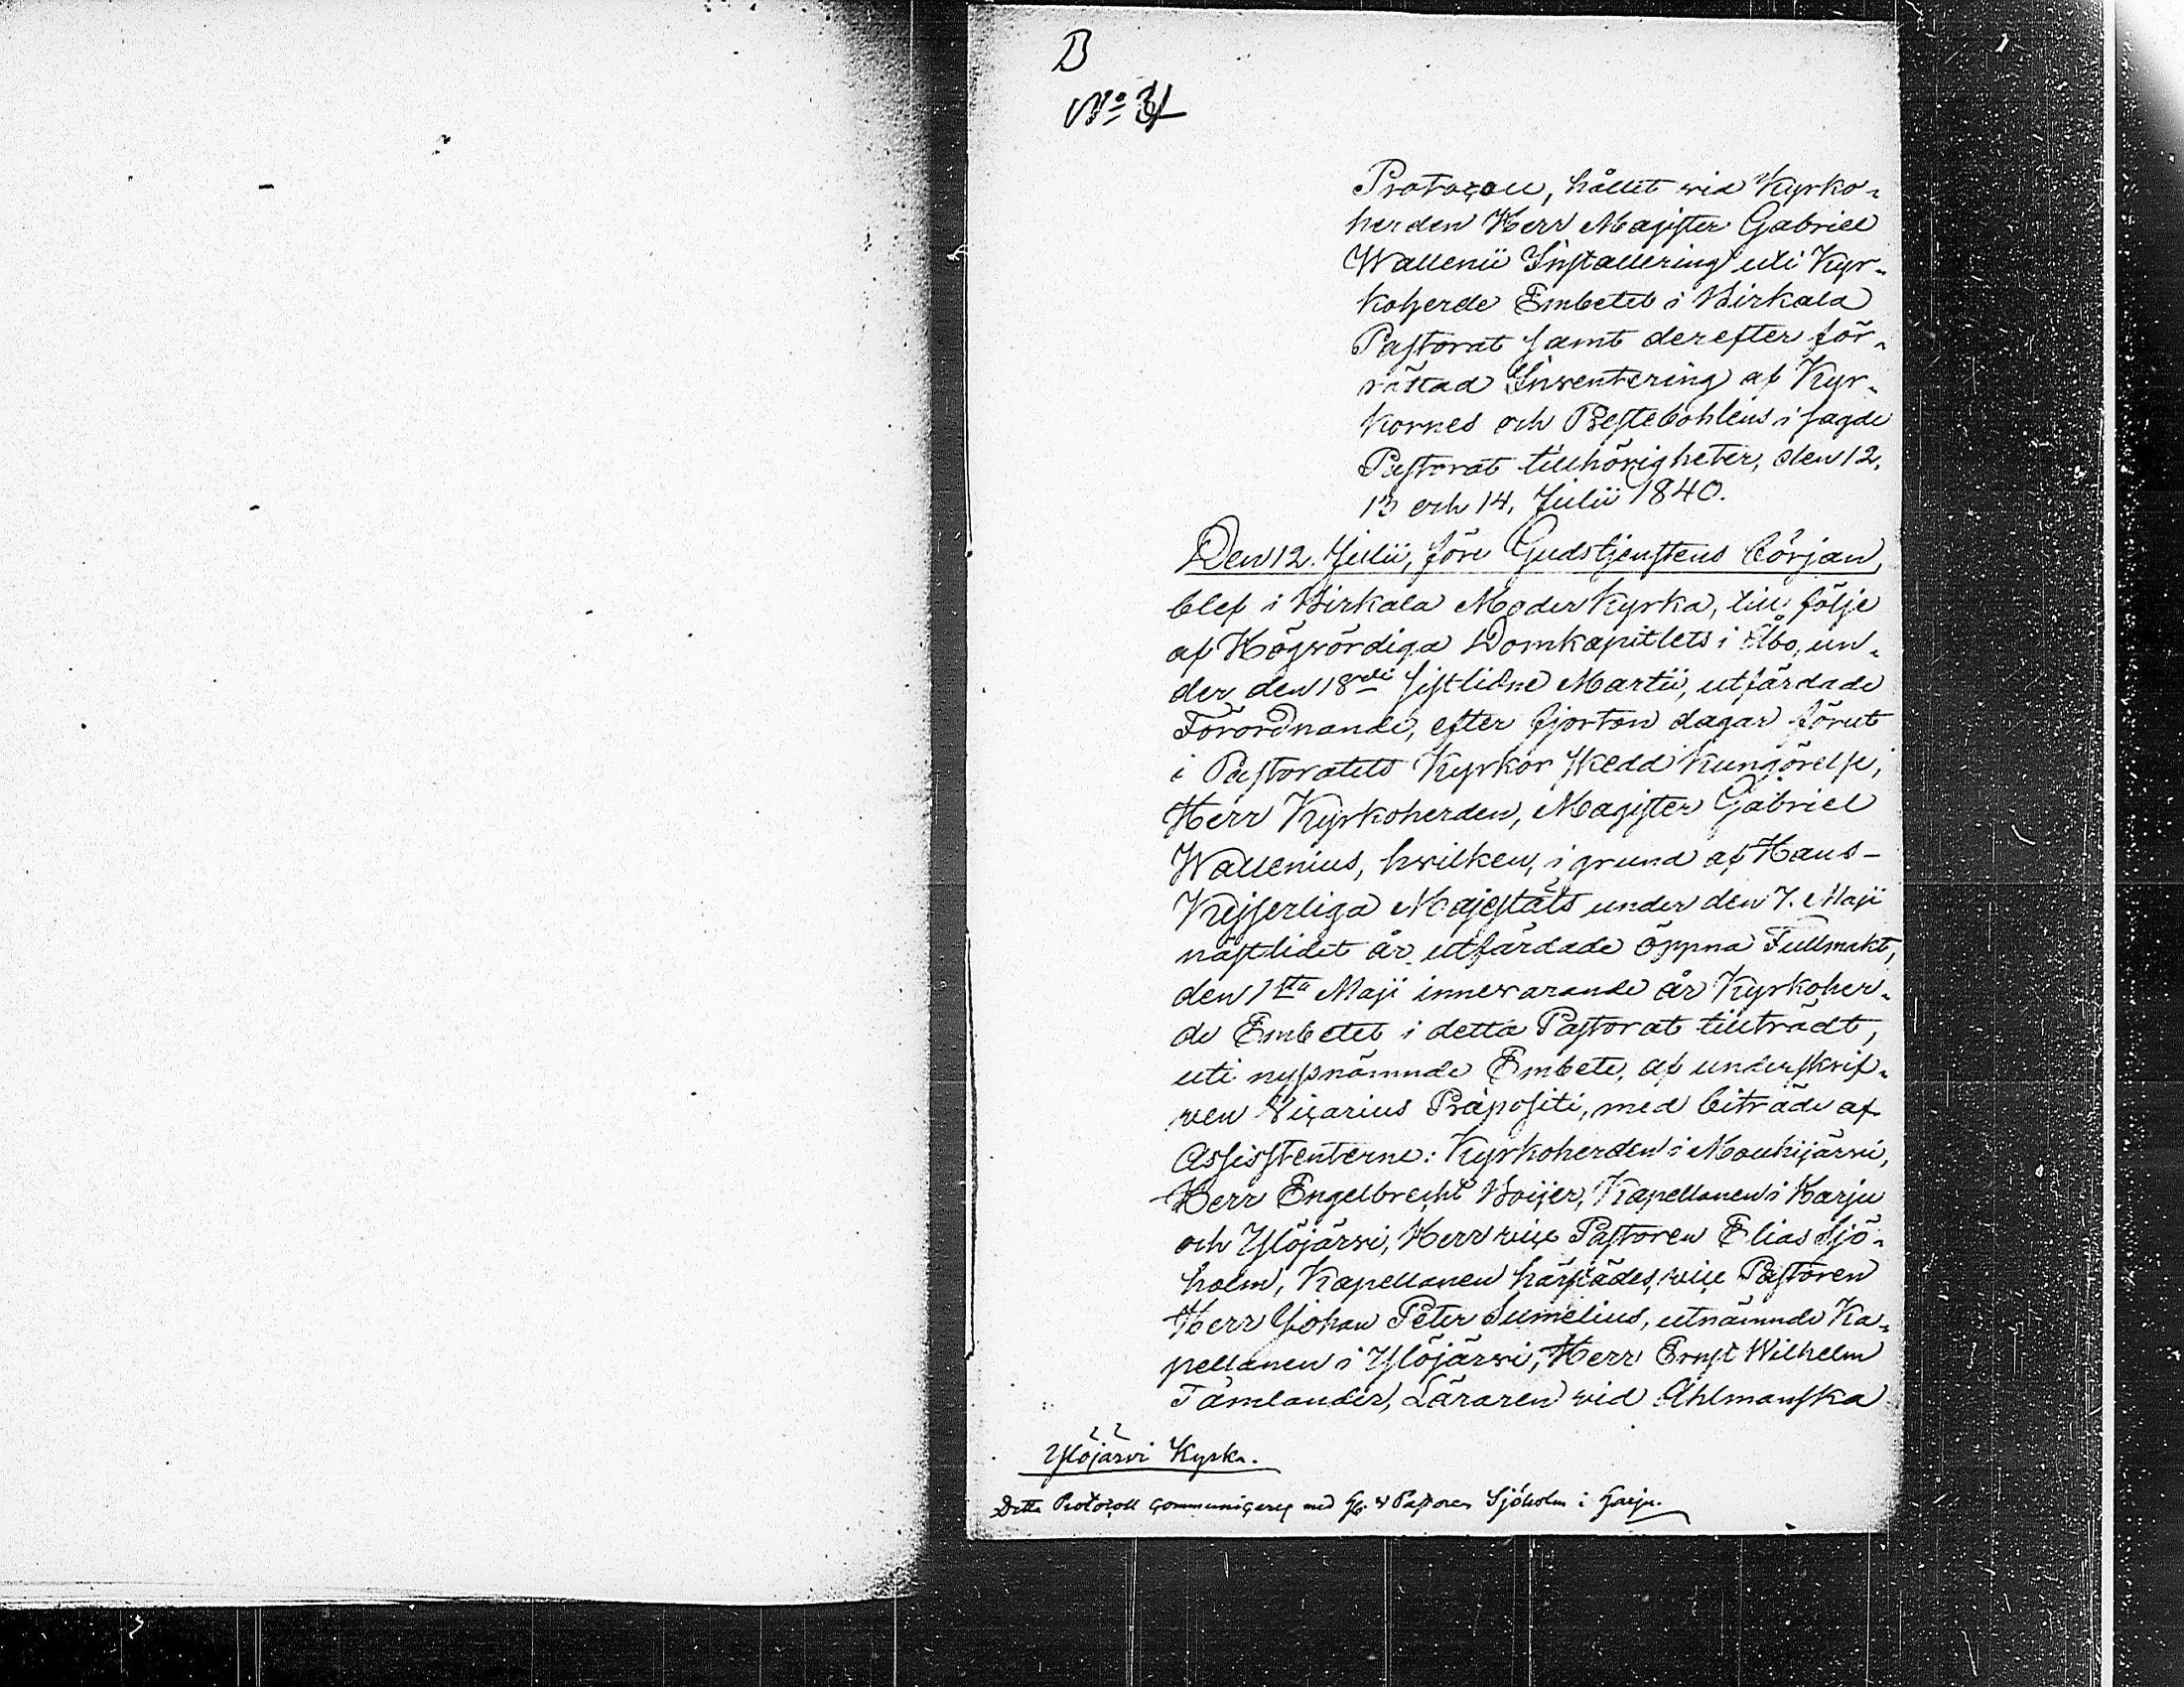 B
No
Protocoll, hållet wid Kyrko-
herden Herr Magister Gabriel
Wallenii Installering uti Kyr-
koherde Embetet i Birkala
Pastorat samt derefter för-
rättad Inventering af Kyr-
kornes och Prestebohlens i sagde
Pastorat tillhörigheter, den 12,
13 och 14. Julii 1840.
Den 12. Julii, före Gudstjenstens början,
blef i Birkala Moderkyrka, till följe
af Högwördiga Domkapitlets i Åbo, un-
der den 18de sistlidne Martii, utfärdade
Förordnande, efter fjorton dagar förut
i Pastoratets Kyrkor skedd kungörelse,
Herr Kyrkoherden, Magister Gabriel
Wallenius, hwilken, i grund af Hans-
Kejserliga Majestäts under den 7. Maji
nästlidet år utfärdade öppna Fullmakt,
den 1sta Maji innewarande år Kyrkoher-
de Embetet i detta Pastorat tillträdt,
uti nyssnämnde Embete, af underskrif-
ven Vicarius Præpositi, med biträde af
Assistenterne: Kyrkoherden i Mouhijärwi,
Herr Engelbrecht Boijer, Kapellanen i Harju
och Ylöjärwi, Herr vice Pastoren Elias Sjö-
holm, Kapellanen härstädes, vice Pastoren
Herr Johan Peter Sumelius, utnämnde Ka-
pellanen i Ylöjärwi, Herr Ernst Wilhelm
Tämlander, Läraren wid Ahlmanska
Ylöjärvi Kyrka.
Detta Protocoll communiceras med H. v Pastoren Sjöholm i Harju.